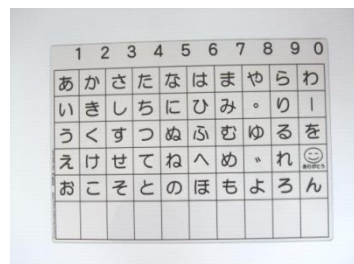 1 2 3 4 5 6 7 8 9 0
あ か さ た な は ま や ら わ
い き し ち に ひ み 。 り ー
う く す つ ぬ ふ む ゆ る を
え け せ て ね へ め 〃 れ
ありがとう
お こ そ と の ほ も よ ろ ん